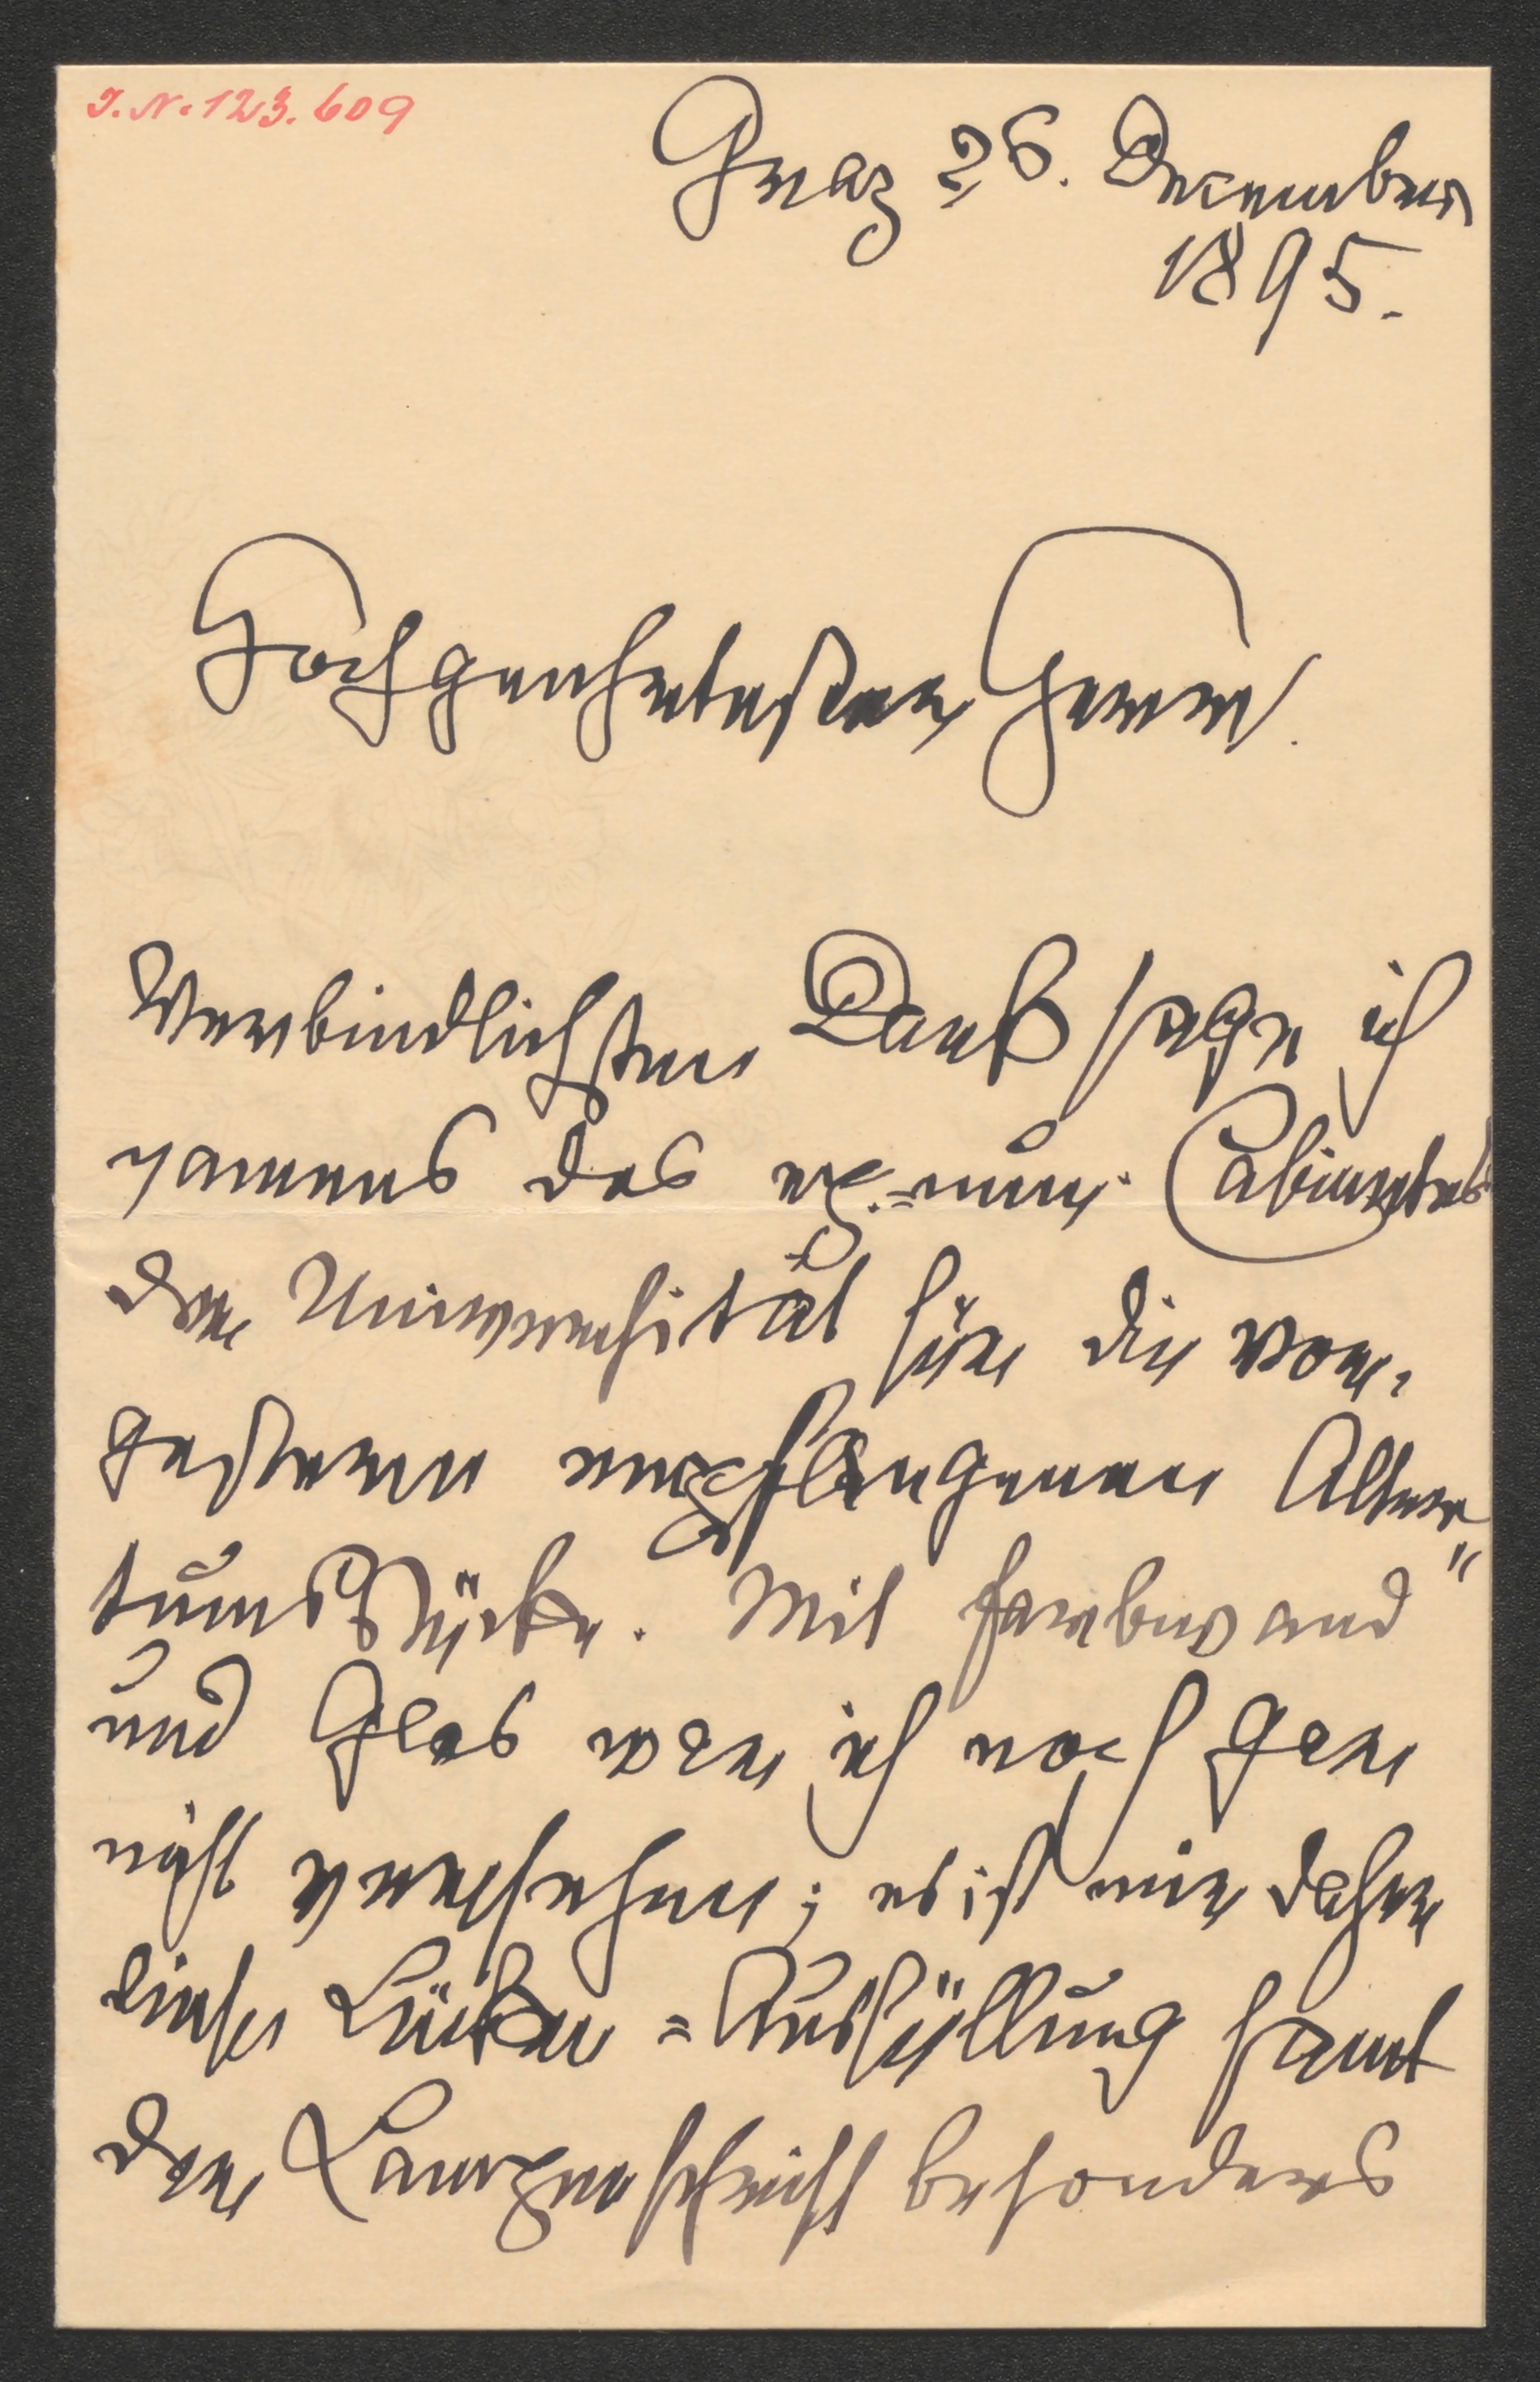 J. N. 123.609
Graz 26. December
1895.
Hochgeehrtester Herr.
Verbindlichsten Dank sage ich
namens des ep.=num. Cabinetes
der Universität für die vor-
gestern empfangenen Alter=
tumsstücke. Mit Farbwand
und Glas war ich noch gar
nicht versehen; es ist mir daher
diese Lücken=Ausfüllung samt
der besonders